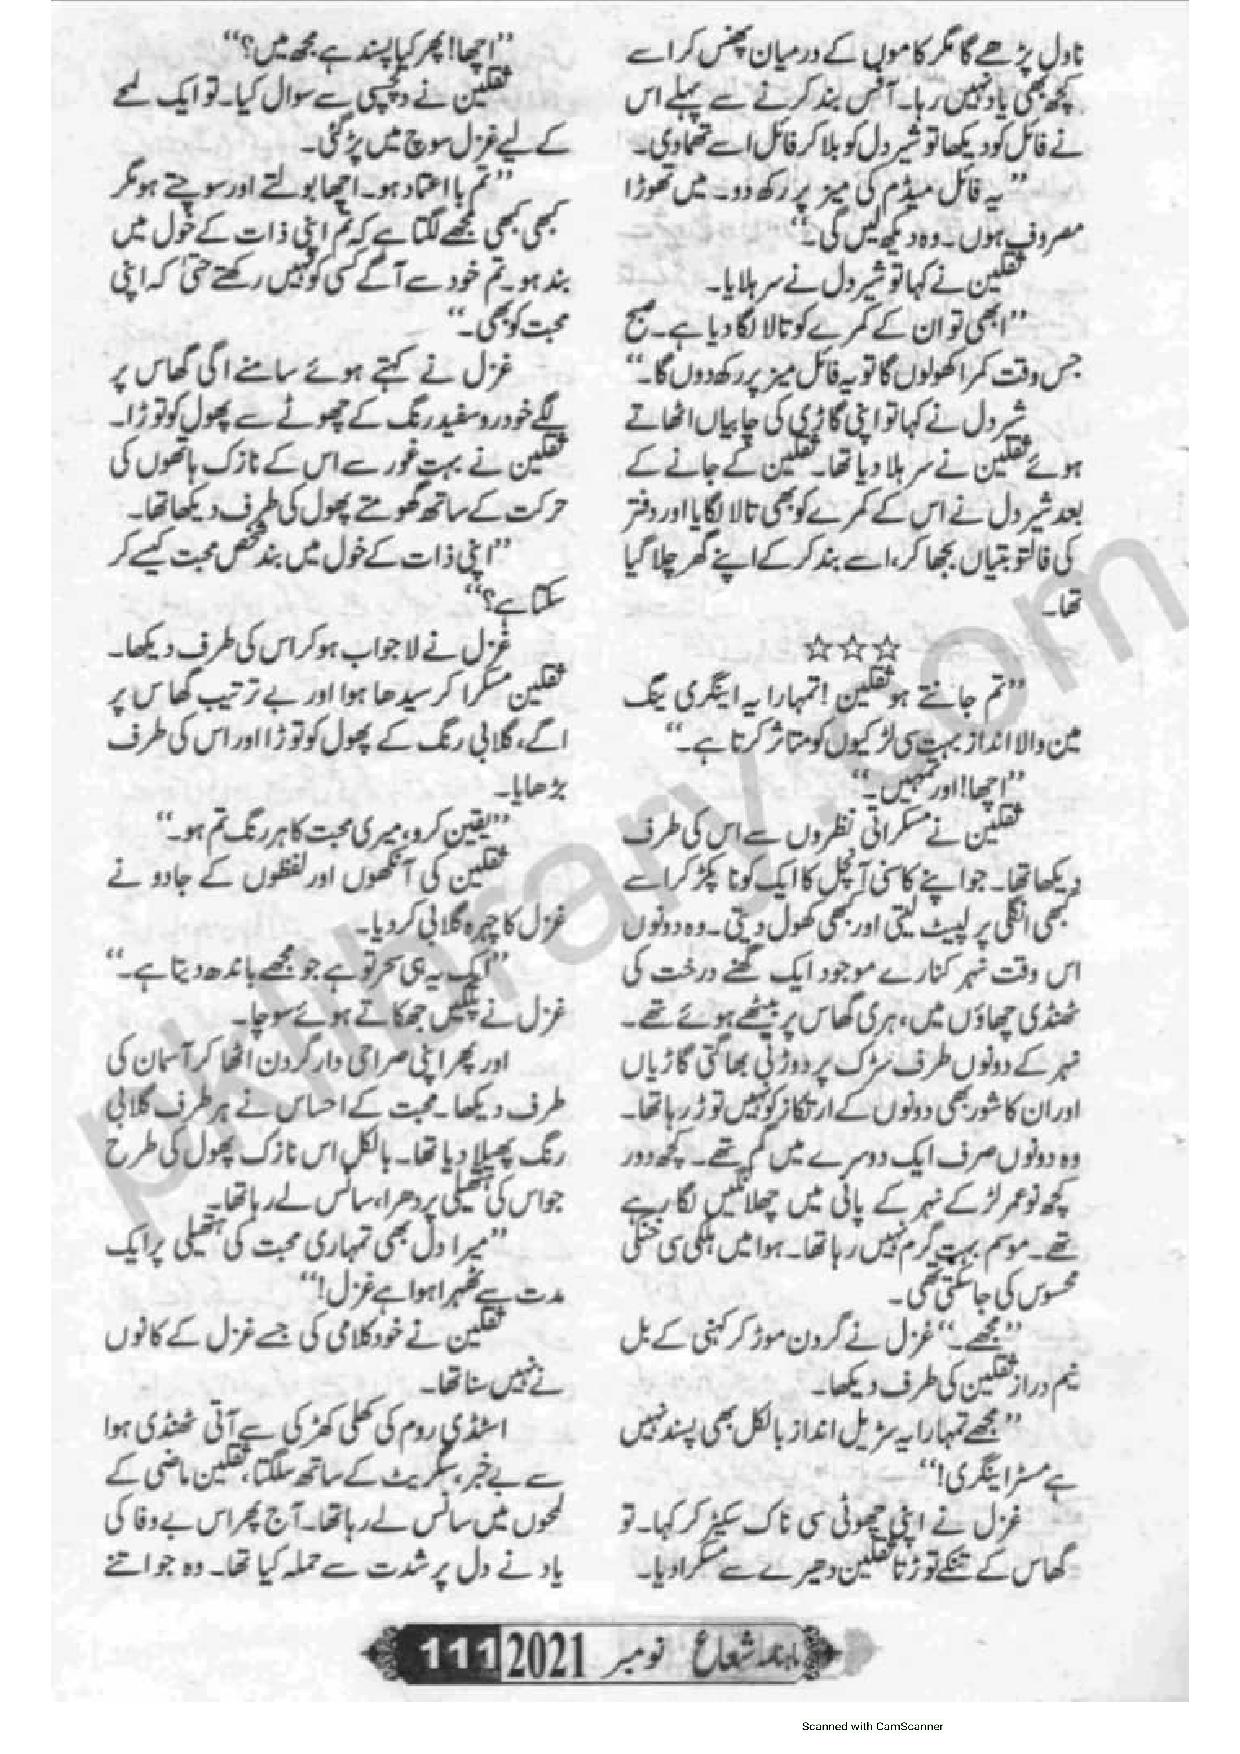 ناول پڑھے گا مگر کاموں کے درمیان پھنس کر اسے
کچھ بھی یاد نہیں رہا۔ آفس بند کرنے سے پہلے اس
نے فائل کو دیکھا تو شیر دل کو بلا کر فائل اسے تھما دی۔
”یہ فائل میڈم کی میز پر رکھ دو۔ میں تھوڑا
مصروف ہوں۔ وہ دیکھ لیں گی۔“
ثقلین نے کہا تو شیر دل نے سر ہلایا۔
”ابھی تو ان کے کمرے کو تالا لگا دیا ہے۔ صبح
جس وقت کمرا کھولوں گا تو یہ فائل میز پر رکھ دوں گا۔“
شیر دل نے کہا تو اپنی گاڑی کی چابیاں اٹھاتے
ہوئے ثقلین نے سر ہلا دیا تھا۔ ثقلین کے جانے کے
بعد شیر دل نے اس کے کمرے کو بھی تالا لگایا اور دفتر
کی فالتو بتیاں بجھا کر، اسے بند کر کے اپنے گھر چلا گیا
تھا۔
☆☆☆
”تم جانتے ہو ثقلین! تمہارا یہ اینگری ینگ
مین والا انداز بہت سی لڑکیوں کو متاثر کرتا ہے۔“
”اچھا! اور تمہیں۔“
ثقلین نے مسکراتی نظروں سے اس کی طرف
دیکھا تھا۔ جو اپنے کاسنی آنچل کا ایک کونا پکڑ کر اسے
کبھی انگلی پر لپیٹ لیتی اور کبھی کھول دیتی۔ وہ دونوں
اس وقت نہر کنارے موجود ایک گھنے درخت کی
ٹھنڈی چھاؤں میں، ہری گھاس پر بیٹھے ہوئے تھے۔
نہر کے دونوں طرف سڑک پر دوڑتی بھاگتی گاڑیاں
اور ان کا شور بھی دونوں کے ارتکاز کو نہیں توڑ رہا تھا۔
وہ دونوں صرف ایک دوسرے میں گم تھے۔ کچھ دور
کچھ نو عمر لڑکے نہر کے پانی میں چھلانگیں لگا رہے
تھے۔ موسم بہت گرم نہیں رہا تھا۔ ہوا میں ہلکی سی خنکی
محسوس کی جا سکتی تھی۔
”مجھے۔“ غزل نے گردن موڑ کر کہنی کے بل
نیم دراز ثقلین کی طرف دیکھا۔
”مجھے تمہارا یہ سڑیل انداز بالکل بھی پسند نہیں
ہے مسٹر اینگری!“
غزل نے اپنی چھوٹی سی ناک سکیڑ کر کہا۔ تو
گھاس کے تنکے توڑتا ثقلین دھیرے سے مسکرا دیا۔
”اچھا! پھر کیا پسند ہے مجھ میں؟“
ثقلین نے دلچسپی سے سوال کیا۔ تو ایک لمحے
کے لیے غزل سوچ میں پڑ گئی۔
”تم با اعتماد ہو۔ اچھا بولتے اور سوچتے ہو مگر
کبھی کبھی مجھے لگتا ہے کہ تم اپنی ذات کے خول میں
بند ہو۔ تم خود سے آگے کسی کو نہیں رکھتے حتیٰ کہ اپنی
محبت کو بھی۔“
غزل نے کہتے ہوئے سامنے اگی گھاس پر
لگے خود رو سفید رنگ کے چھوٹے سے پھول کو توڑا۔
ثقلین نے بہت غور سے اس کے نازک ہاتھوں کی
حرکت کے ساتھ گھومتے پھول کی طرف دیکھا تھا۔
”اپنی ذات کے خول میں بند شخص محبت کیسے کر
سکتا ہے؟“
غزل نے لاجواب ہو کر اس کی طرف دیکھا۔
ثقلین مسکرا کر سیدھا ہوا اور بے ترتیب گھاس پر
اگے، گلابی رنگ کے پھول کو توڑا اور اس کی طرف
بڑھایا۔
”یقین کرو، میری محبت کا ہر رنگ تم ہو۔“
ثقلین کی آنکھوں اور لفظوں کے جادو نے
غزل کا چہرہ گلابی کر دیا۔
”ایک یہ ہی سحر تو ہے جو مجھے باندھ دیتا ہے۔“
غزل نے پلکیں جھکاتے ہوئے سوچا۔
اور پھر اپنی صراحی دار گردن اٹھا کر آسمان کی
طرف دیکھا۔ محبت کے احساس نے ہر طرف گلابی
رنگ پھیلا دیا تھا۔ بالکل اس نازک پھول کی طرح
جو اس کی ہتھیلی پر دھرا، سانس لے رہا تھا۔
”میرا دل بھی تمہاری محبت کی ہتھیلی پر ایک
مدت سے ٹھہرا ہوا ہے غزل!“
ثقلین نے خود کلامی کی جسے غزل کے کانوں
نے نہیں سنا تھا۔
اسٹڈی روم کی کھلی کھڑکی سے آتی ٹھنڈی ہوا
سے بے خبر، سگریٹ کے ساتھ سلگتا، ثقلین ماضی کے
لمحوں میں سانس لے رہا تھا۔ آج پھر اس بے وفا کی
یاد نے دل پر شدت سے حملہ کیا تھا۔ وہ جو اتنے
ماہنامہ شعاع نومبر 2021 111
pklibrary.com
Scanned with CamScanner